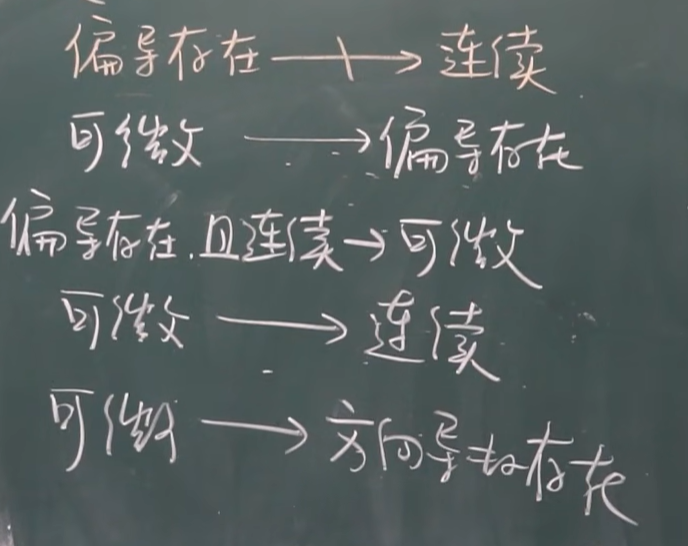 偏导存在⇸连续
可微→偏导存在
偏导存在.且连续→可微
可微→连续
可微→方向导数存在